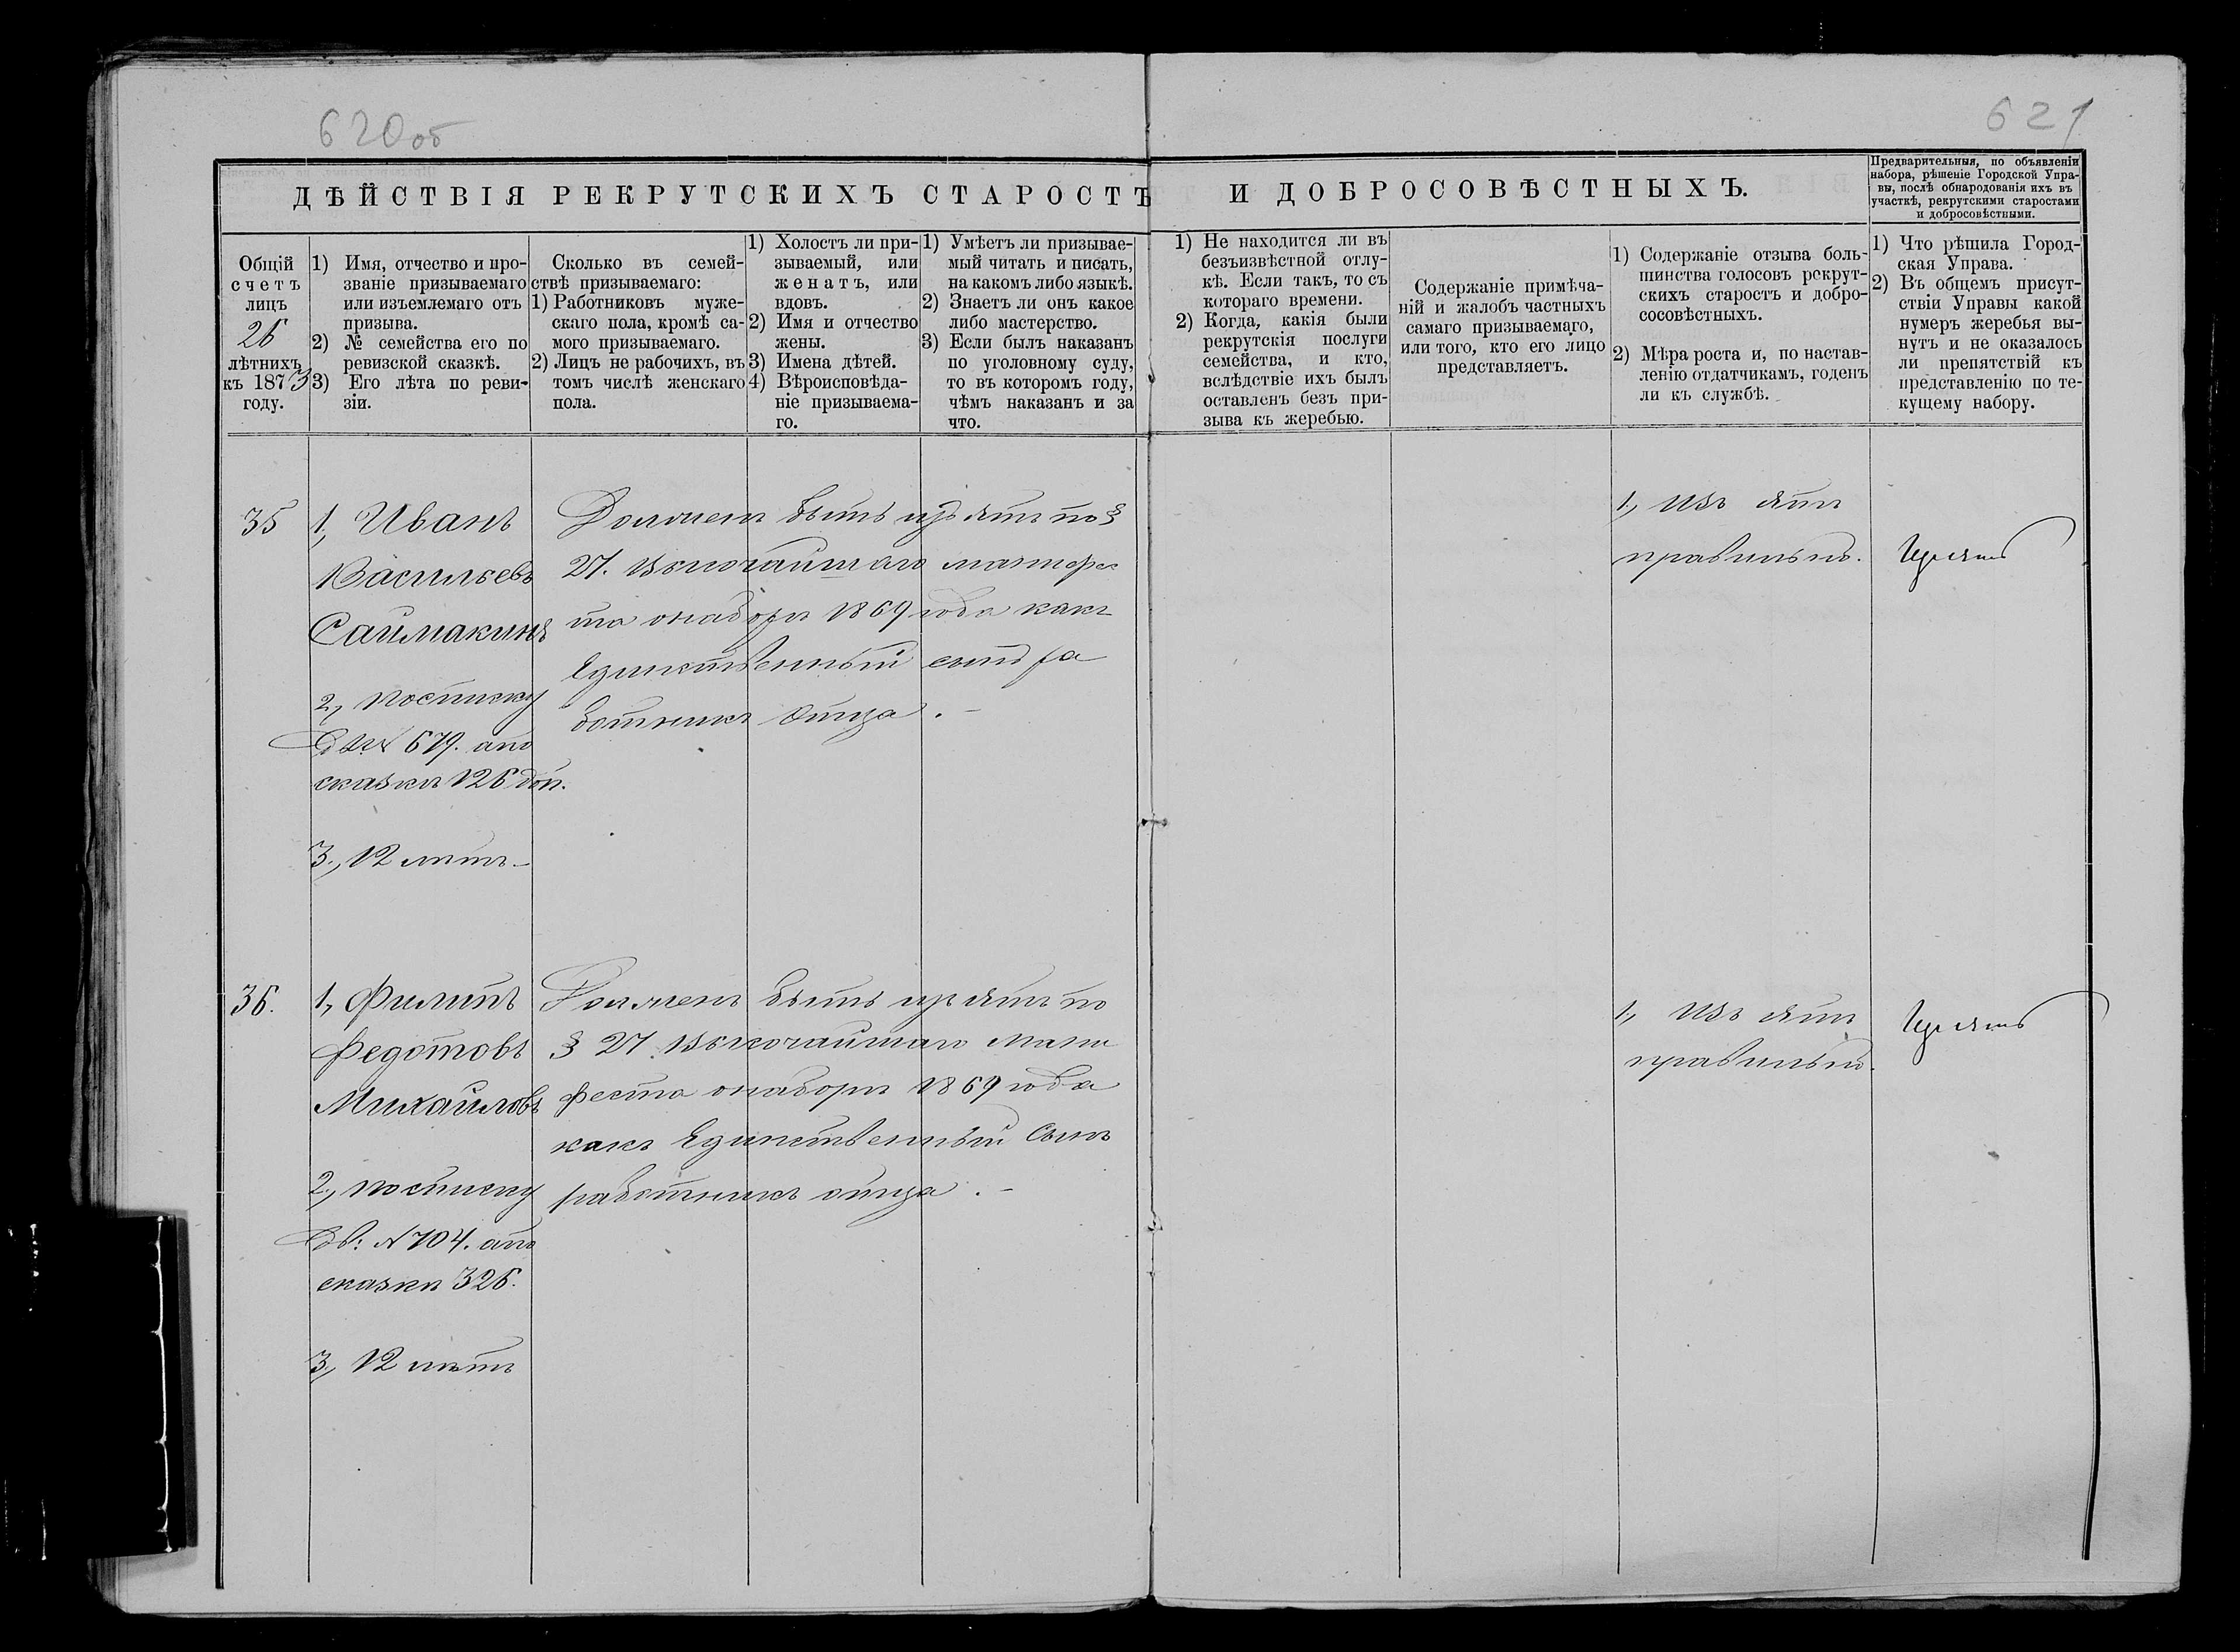 620об
621
ДѢЙСТВІЯ РЕКРУТСКИХЪ СТАРОСТЪ И ДОБРОСОВѢСТНЫХЪ.
Предварительныя, по объявленіи
набора, рѣшеніе Городской Упра-
вы, послѣ обнародованія ихъ въ
участкѣ, рекрутскими старостами
и добросовѣстными.
Общій
счетъ
лицъ
26
лѣтнихъ
къ 1873
году.
1) Имя, отчество и про-
званіе призываемаго
или изъемлемаго отъ
призыва.
2) № семейства его по
ревизской сказкѣ.
3) Его лѣта по реви-
зіи.
Сколько въ семей-
ствѣ призываемаго:
1) Работниковъ муже-
скаго пола, кромѣ са-
мого призываемаго.
2) Лицъ не рабочихъ, въ
томъ числѣ женскаго
пола.
1) Холостъ ли при-
зываемый, или
женатъ, или
вдовъ.
2) Имя и отчество
жены.
3) Имена дѣтей.
4) Вѣроисповѣда-
ніе призываема-
го.
1) Умѣетъ ли призывае-
мый читать и писать,
на какомъ либо языкѣ.
2) Знаетъ ли онъ какое
либо мастерство.
3) Если былъ наказанъ
по уголовному суду,
то въ которомъ году,
чѣмъ наказанъ и за
что.
1) Не находится ли въ
безъизвѣстной отлу-
кѣ. Если такъ, то съ
котораго времени.
2) Когда, какія были
рекрутскія послуги
семейства, и кто,
вслѣдствіе ихъ былъ
оставленъ безъ при-
зыва къ жеребью.
Содержаніе примѣча-
ній и жалобъ частныхъ
самаго призываемаго,
или того, кто его лицо
представляетъ.
1) Содержаніе отзыва боль-
шинства голосовъ рекрут-
скихъ старостъ и добро-
сосовѣстныхъ.
2) Мѣра роста и, по настав-
ленію отдатчикамъ, годенъ
ли къ службѣ.
1) Что рѣшила Город-
ская Управа.
2) Въ общемъ присут-
ствіи Управы какой
нумеръ жеребья вы-
нутъ и не оказалось
ли препятствій къ
представленію по те-
кущему набору.
35
1, Иванъ
Васильевъ
Саймакинъ
2, по списку
№ 679. а по
сказкѣ 126 доп.
3., 12 лѣтъ
Долженъ быть изъятъ по §
27. Высочайшаго манифес
та о наборѣ 1869 года какъ
Единственный сынъ ра
ботникъ Отца . -
1., Изъятъ
правильно.
Изъять
36.
1, Филипъ
Федотовъ
Михайловъ
2, по списку
№ 704. а по
сказкѣ 326.
3, 12 лѣтъ
Долженъ быть изъятъ по
§ 27. Высочайшаго Мани
феста о наборѣ 1869 года
какъ Единственный Сынъ
работникъ отца . -
1., Изъятъ
правильно.
Изъять